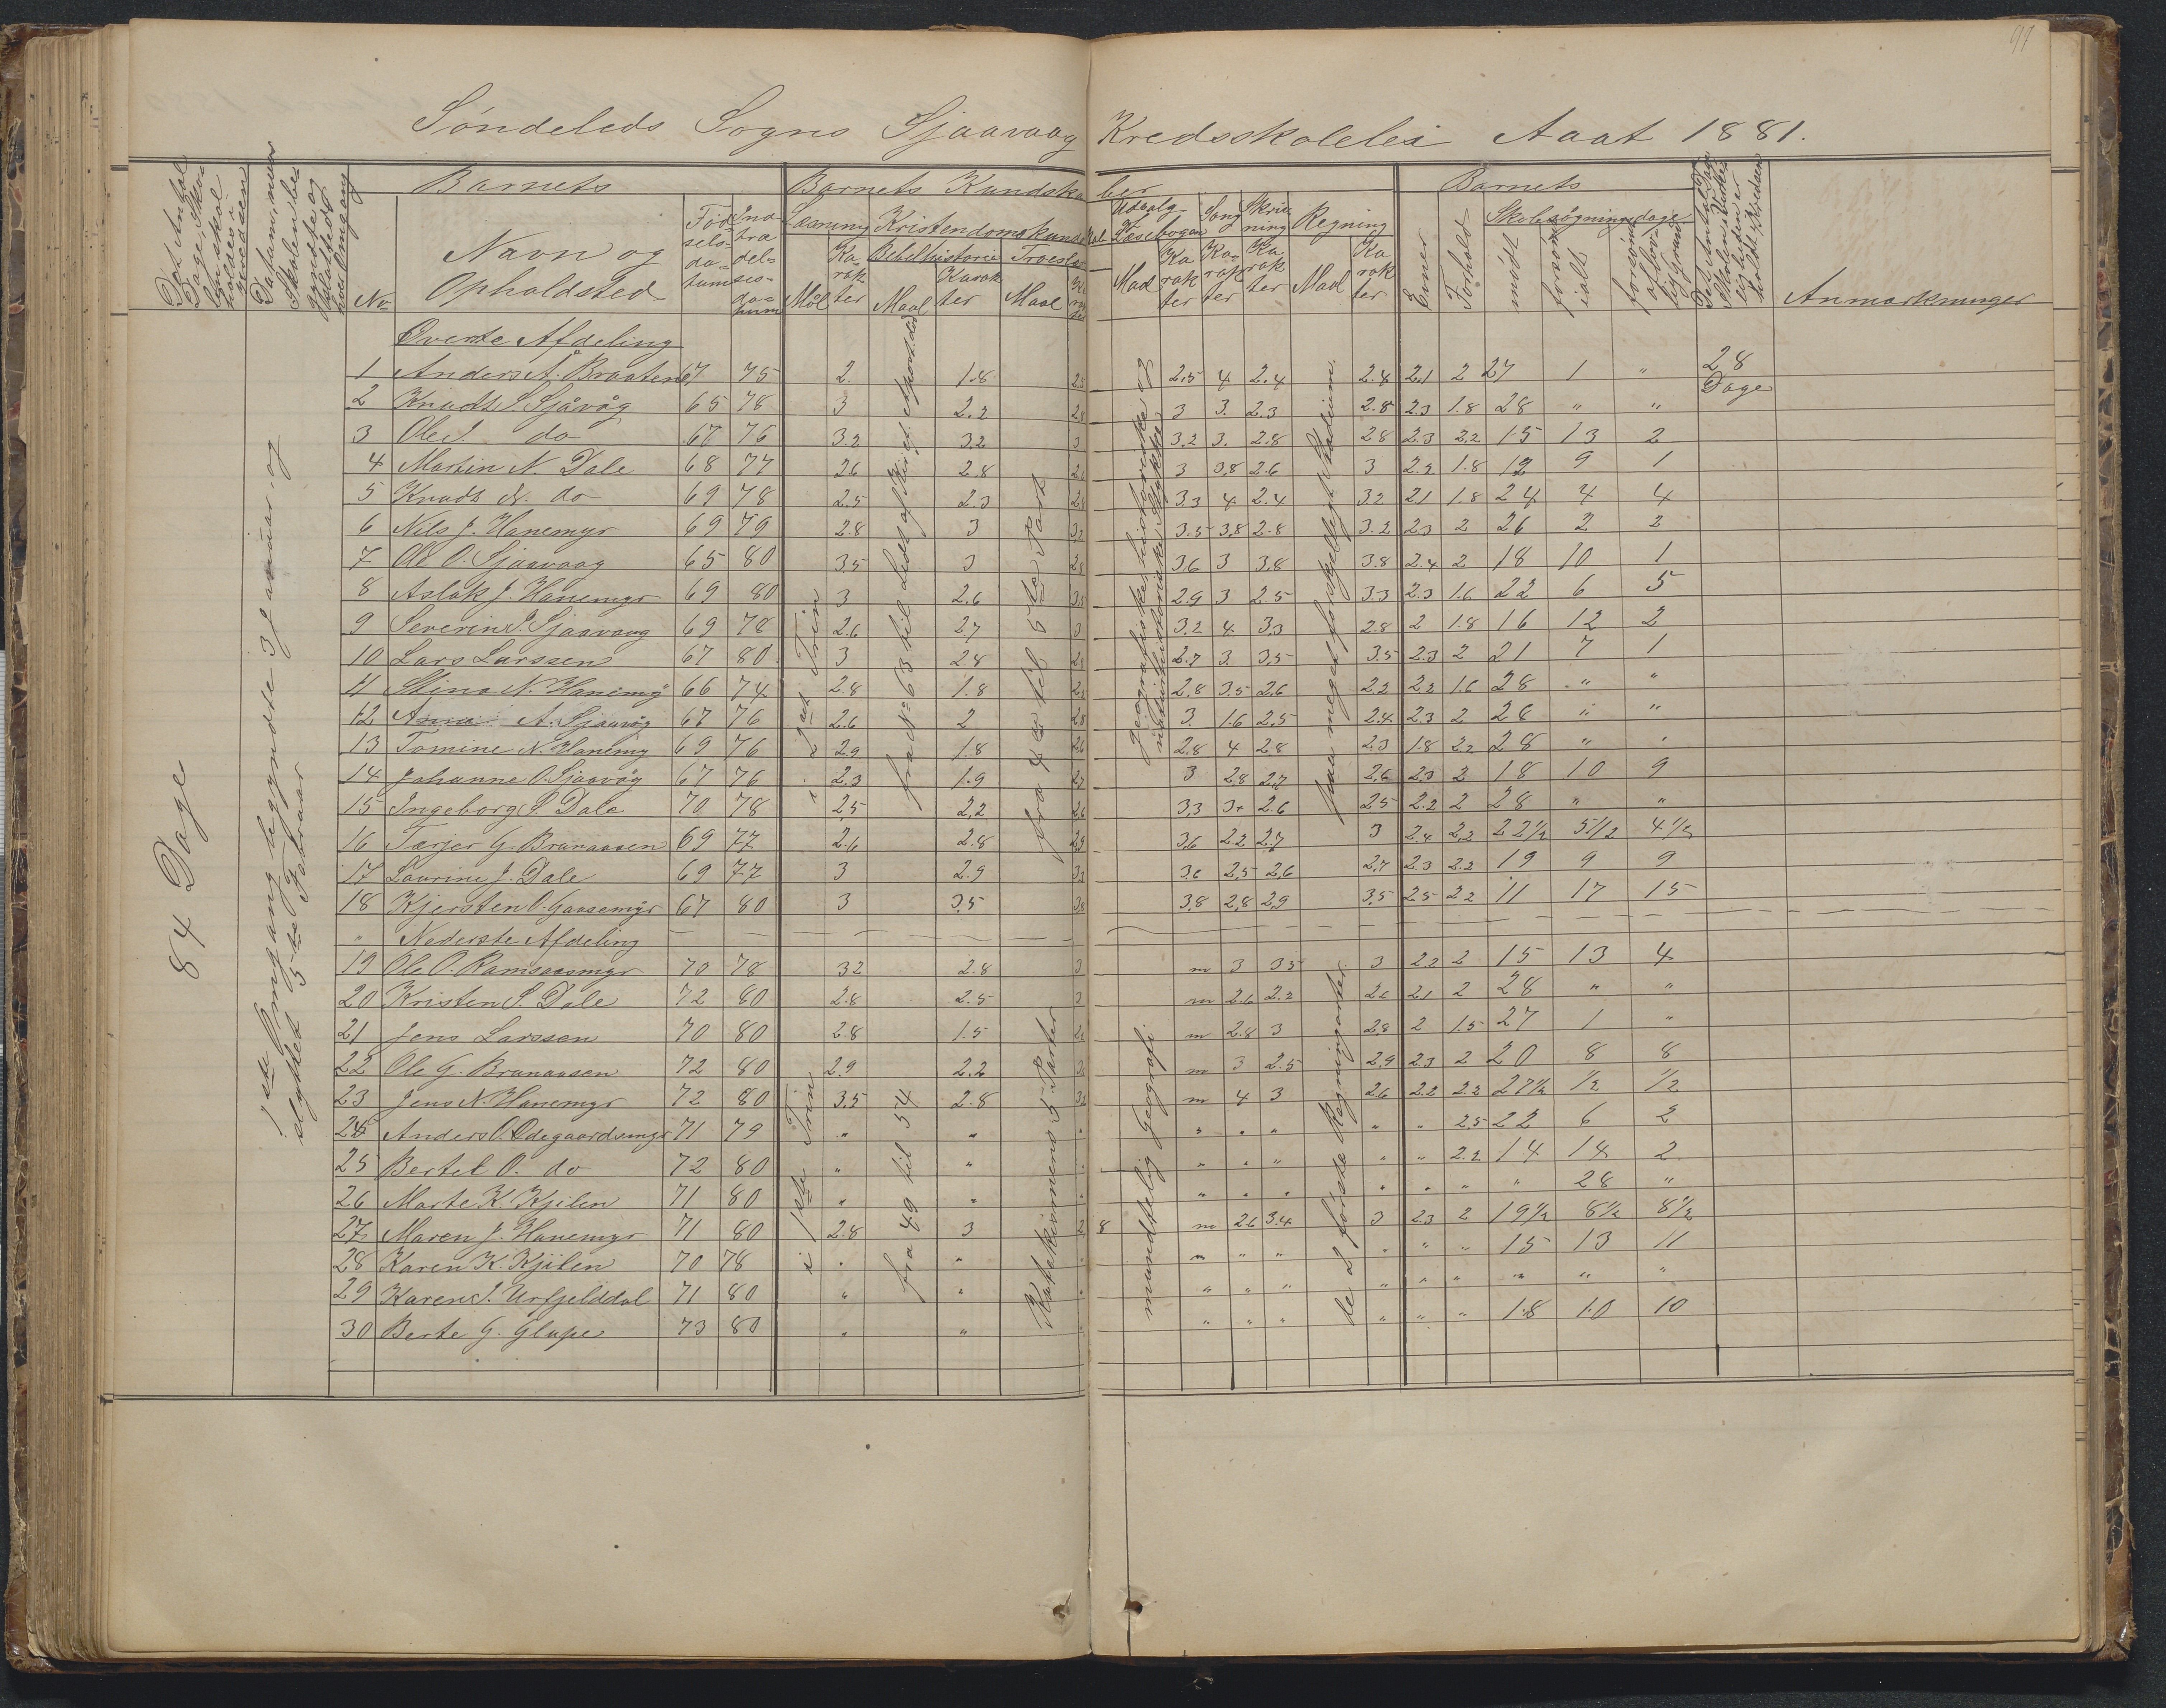 97
Søndeleds Sogns Sjaavaag Kredsskole i Aaat 1881.
Det Antal Dage, Skolen skal holdes i Kredsen
Datum, naar Skolen begyndte og sluttede hver Omgang
No
Barnets
Navn og Opholdsted
Fødselsdatum
Indtrædelsesdatum
Barnets Kundskaber
Læsning
Mål
Karakter
Kristendomskundskab
Bibelhistorie
Maal
Karakter
Troeslære
Maal
Udvalg Læsebogen
Maal
Karakter
Sang
Karakter
Skrivning
Karakter
Regning
Maal
Karakter
Barnets
Evner
Forhold
Skolesøgningsdage
mødt
forsømt ialt
Anmærkninger
84 Dage
1ste Omgang begyndte 3 Januar og
sluttet 5te Februar
Øverste Afdeling
i 2det Trin
fra No 63 til
fra 4de til 5te Part
1 Anders A. Braaten 67 75 2. 1.8 2.5 2,5 4 2.4 2.4 2.1 2 27 1 " 28 Dage
2 Knudt S. Sjåvåg 65 78 3 2.2 3 3. 2.3 2.8 2.3 1.8 28 " "
3 Ole S. do 67 76 3.2 3.2 3 3.2 3. 2.8 2.8 2.3 2.2 15 13 2
4 Martin N. Dale 68 77 2.6 2.8 3 3,8 2.6 3 2.2 1.8 12 9 1
5 Knudt N. do 69 78 2.5 2.3 3.3 4 2.4 3.2 2.1 1.8 24 4 4
6 Nils J. Hanemyr 69 79 2.8 3 3.5 3,8 2.8 3.2 2.3 2 26 2 2
7 Ole O. Sjaavaag 65 80 3,5 3 3,6 3 3,8 3.8 2.4 2 18 10 1
8 Aslak J. Hanemyr 69 80 3 2.6 2.9 3 2.5 3.3 2.3 1.6 22 6 5
9 Severin S. Sjaavaag 69 78 2.6 2,7 3 3.2 4 3,3 2.8 2 1.8 16 12 2
10 Lars Larssen 67 80 3 2.8 2.7 3. 3,5 3.5 2.3 2 21 7 1
11 Stina N. Hanemy 66 74 2.8 1.8 2.8 3.5 2.6 2.2 2.2 1.6 28 " "
12 Anna A. Sjaavåg 67 76 2.6 2 3. 1.6 2.5 2.4 2.3 2 28 " "
13 Tomine N. Hanemy 69 76 2.9 1.8 2.8 4 2.8 2.3 1.8 2.2 28 " "
14 Johanne O. Sjaavåg 67 76 2.3 1.9 3 2,8 2,7 2,6 2.3 2 18 10 9
15 Ingeborg S. Dale 70 78 2,5 2,2 3,3 3. 2.6 2.5 2.2 2 28 " "
16 Tærjer G. Brunaasen 69 77 2.6 2.8 3,6 2.2 2.7 3 2.4 2,2 22½ 5½ 4½
17 Laurine J. Dale 69 77 3 2.9 3.6 2,5 2,6 2,7 2.3 2.2 19 9 9
18 Kjersten O. Gaasemyr 67 80 3 3,5 3,8 2,8 2,9 3,5 2.5 2.2 11 17 15
" Nederste Afdeling
i 1ste Trin
fra 49 til 54
Katekismens 5 Parter
mundtlig Geografi
de 2 første Regningsarter
19 Ole O. Ramsaasmyr 70 78 3.2 2.8 3 m 3 3.5 3 2.2 2 15 13 4
20 Kristen S. Dale 72 80 2.8 2.5 m 2.6 2.2 2.6 2.1 2 28 " "
21 Jens Larssen 70 80 2.8 1.5 m 2.8 3 2,8 2 1.5 27 1 "
22 Ole G. Brunaasen 72 80 2.9 2.2 m 3 2.5 2.9 2.3 2 20 8 8
23 Jens N. Hanemyr 72 80 3,5 2.8 m 4 3 2.6 2.2 2.2 27½ ½ ½
24 Anders O. Ødegaardsmyr 71 79 " " " " " " " 2.5 22 6 2
25 Bertel O. do 72 80 " " " " " " " 2.2 14 14 2
26 Marte K. Kjilen 71 80 " " " " " " " " " 28 "
27 Maren J. Hanemyr 71 80 2.8 3 2 8 m 2.6 3.4 3 2.3 2 19½ 8½ 8½
28 Karen K. Kjilen 70 78 " " " " " " " " 15 13 11
29 Karen S. Urfjelddal 71 80 " " " " " " " " " " "
30 Berte G. Glupe 73 80 " " " " " " " " 18 10 10